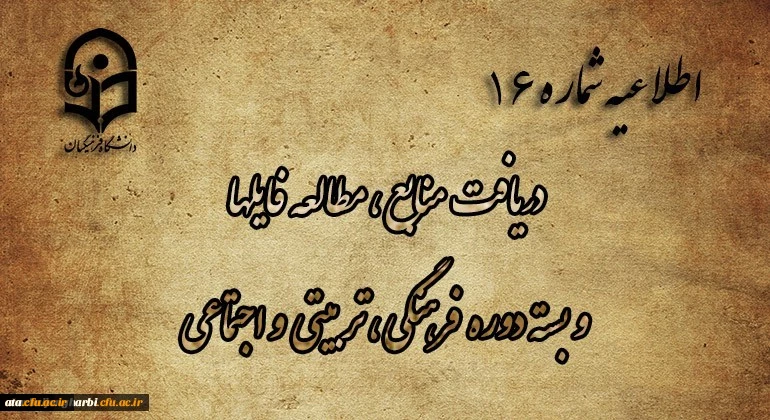 اطلاعیه شماره ۱۶
دانشگاه فرهنگیان
دریافت منابع، مطالعه فایلها
و بسته دوره فرهنگی، تربیتی و اجتماعی
ata.cfu.ac.ir
arbi.cfu.ac.ir